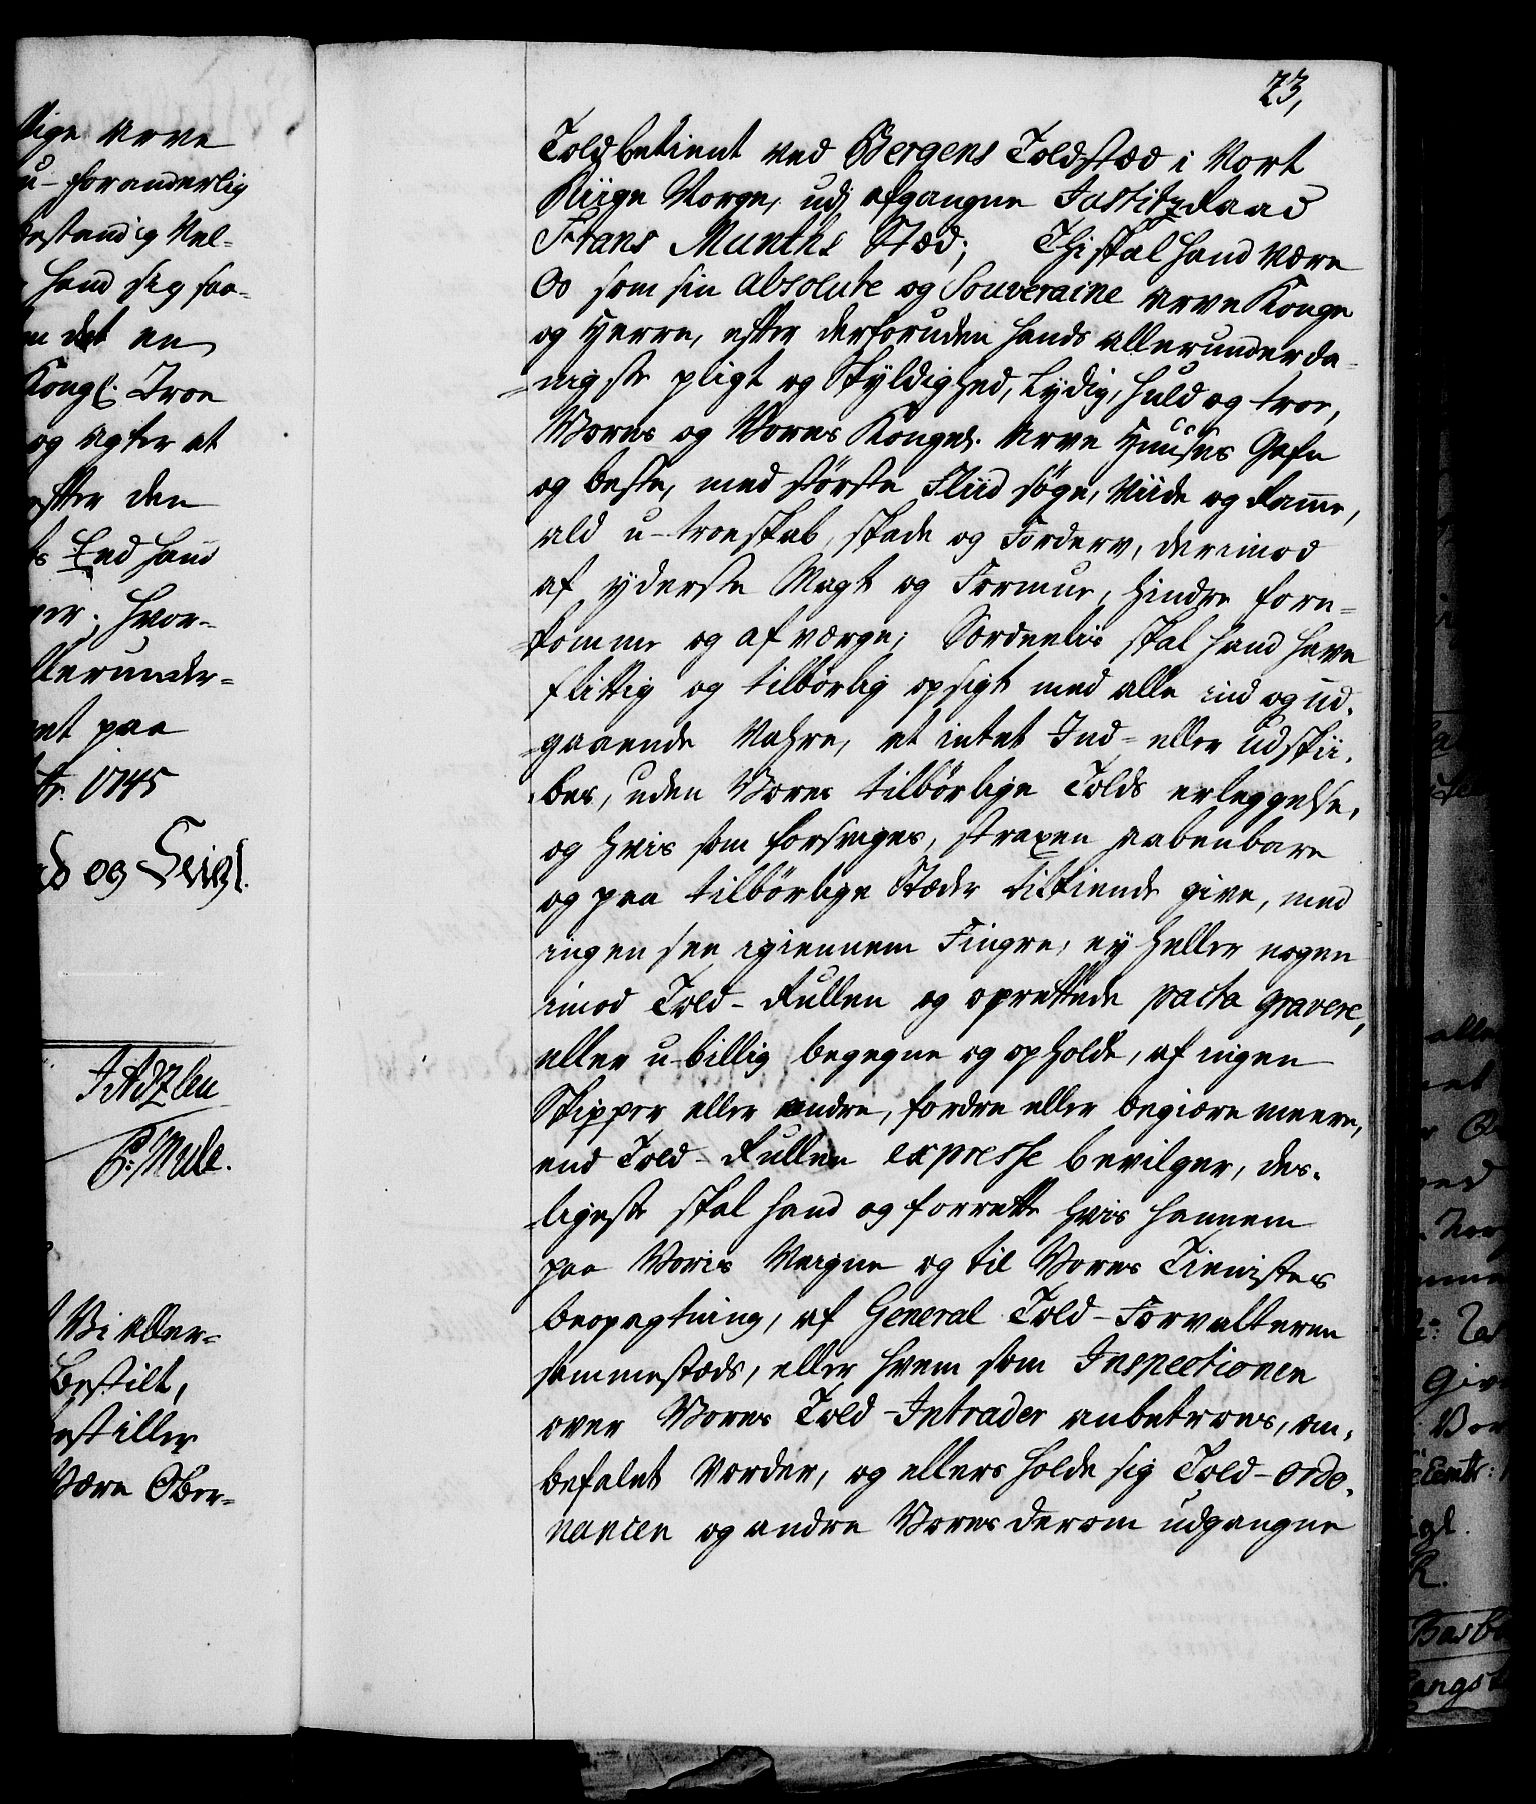 23,
Toldbetient ved Bergens Toldstæd i Vort
Riige Norge, udj afgangne Justitz Raad
Frans Munths Stæd; Thi skal hand være
Os som sin absolute og Souveraine Arve Konge
og Herre, efter derforuden hands allerunderda-
-nigste pligt og Skyldighed, Lydig, huld og troe,
Vores og Vores Kongel. Arve Huuses Gafn
og beste, med største Fliid søge, Viide og Ramme,
ald u-troeskab, skade og Forderv, derimod
af yderste Magt og Formue, hindre fore-
-komme og afværge; Særdeelis skal hand have
flittig og tilbørlig opsigt med alle ind og ud-
-gaaende Vahre, at intet Ind- eller udskii-
-bes, uden Vores tilbørlige Tolds erleggelse,
og hvis som forsvoges, straxen aabenbare
og paa tilbørlige Stæder tilkiende give, med
ingen see igiennem Fingre, ey heller nogen
imod Told-Rullen og oprettede pacta gravere,
eller u-billig begegne og opholde, af ingen
Skipper eller andre, fordre eller begiære meere,
end Told-Rullen expresse bevilger, des-
-ligeste skal hand og forrette hvis hannem
paa Voris Veigne og til Vores Tienistes
beopagtning, af General Told-Forvalteren
sammestæds, eller hvem som Inspectionen
over Vores Told-Intrader anbetroes, an-
befalet Vorder, og ellers holde sig Told-ordo-
nancen og andre Vores derom udgangne
-tige Arve
u-foranderlig
bestandig Vel-
hand sig saa-
en det en
Kongl. Troe
og agter at
efter den
End hand
hvor-
llerunder-
paa
1745
og Seigl.
P: Mule.
Vi aller-
Bestilt,
bestiller
Være Ober-